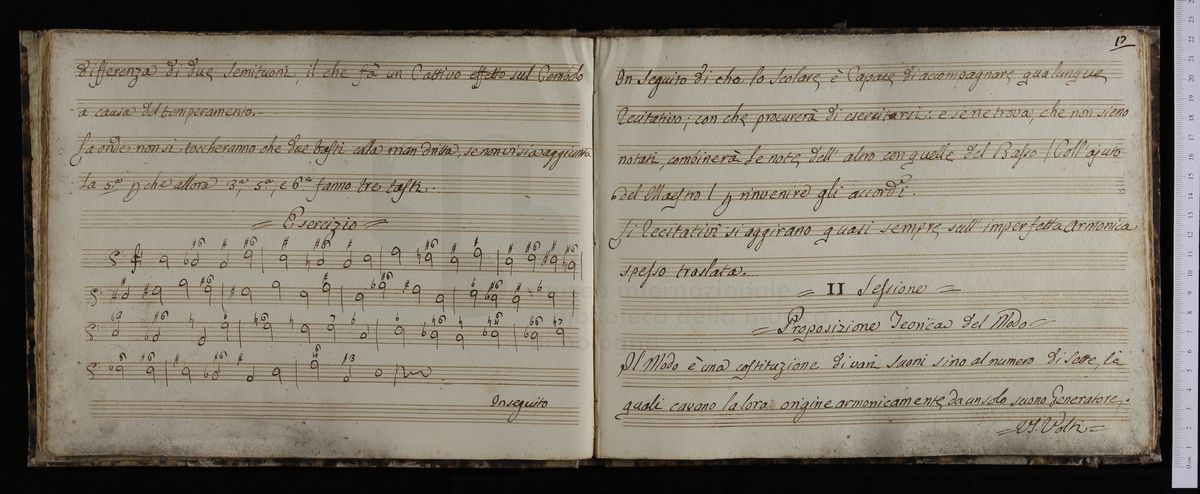 differenza di due semituoni, il che fà un Cattivo effetto sul Cembalo
a causa del temperamento.
La onde non si toccheranno che due tasti colla man dritta, se non vi sia aggiunta
la 5.ª che allora 3.ª, 5.ª, e 6.ª fanno tre tasti.
= Esercizio =
In seguito
17
In seguito di chè lo scolare è Capace di accompagnare qualunque
Recitativo; con che procurerà di esercitarsi: e se ne trova, che non sieno
notati, combinerà le note dell' altro con quelle del Basso / Coll' ajuto
del Maestro / rinvenire gli accordi.
Li Recitativi si aggirano quasi sempre sull' imperfetta armonica
spesso traslata.
= II Sessione =
= Proposizione Teorica del Modo =
Il Modo è una costituzione di varii suoni sino al numero di sette, li
quali cavano la loro origine armonicamente da un solo suono Generatore.
= V.S. Volti =